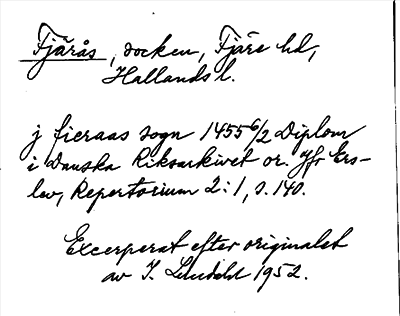 Fjärås, socken, Fjäre hd,
Hallands l.
j fieraas sogn 1455 6/2 Diplom
i Danska Riksarkivet or. Jfr Ers-
lev, Repertorium 2:1, s. 140.
Excerperat efter originalet
av J. Lindahl 1952.